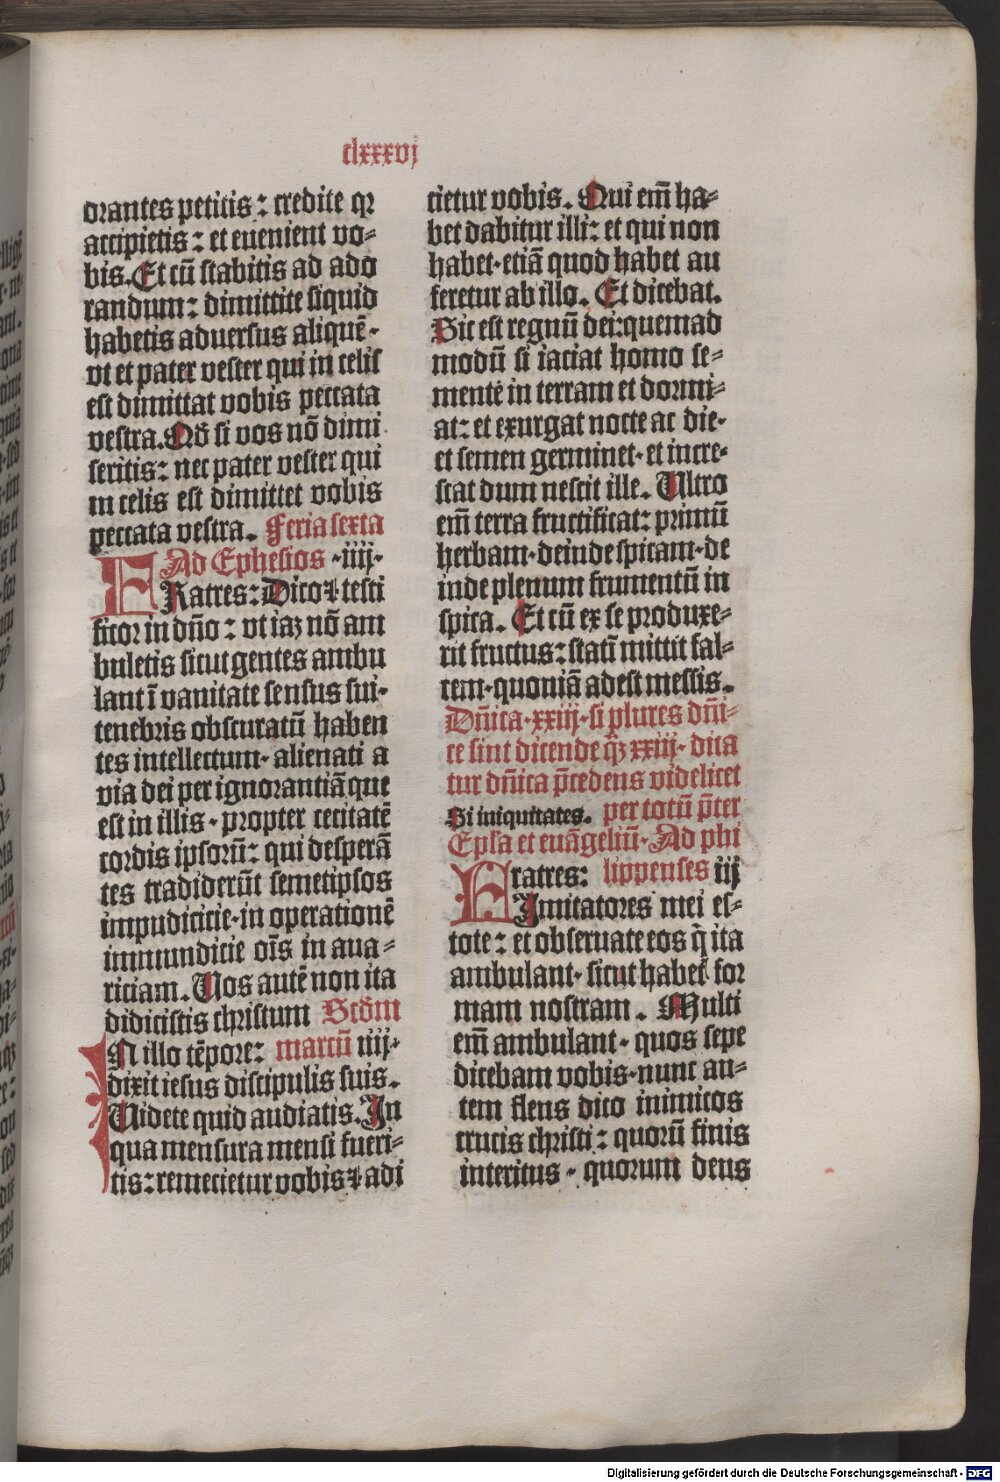 clxxxvj
orantes petitis: credite qr
accipietis: et euenient vo⸗
bis. Et cū stabitis ad ado
randum: dimittite siquid
habetis aduersus aliquē·
vt et pater vester qui in celis
est dimittat vobis peccata
vestra. Qd̄ si vos nō dimi
seritis: nec pater vester qui
in celis est dimittet vobis
peccata vestra. Feria sexta
Ad Ephesios ·iiij·
FRatres: Dico ⁊ testi
ficor in dn̄o: vt iaꝫ nō am
buletis sicut gentes ambu
lant ī vanitate sensus sui·
tenebris obscuratū haben
tes intellectum· alienati a
via dei per ignorantiā que
est in illis· propter cecitatē
cordis ipsorū: qui desperā
tes tradiderūt semetipsos
impudicicie· in operationē
immundicie oīs in aua⸗
riciam. Uos autē non ita
didicistis christum Scd̄m
IN illo tēpore: marcū iiij·
dixit iesus discipulis suis.
Uidete quid audiatis. In
qua mensura mensi fueri⸗
tis: remecietur vobis ⁊ adi
cietur vobis. Qui em̄ ha⸗
bet dabitur illi: et qui non
habet· etiā quod habet au
feretur ab illo. Et dicebat.
Sic est regnū dei: quemad
modū si iaciat homo se⸗
mentē in terram et dormi⸗
at: et exurgat nocte ac die·
et semen germinet· et incre⸗
scat dum nescit ille. Ultro
em̄ terra fructificat: primū
herbam· deinde spicam· de
inde plenum frumentū in
spica. Et cū ex se produxe⸗
rit fructus: statī mittit fal⸗
cem· quoniā adest messis.
Dn̄ica ·xxiij· si plures dn̄i⸗
ce sint dicende q̄ꝫ xxiij· dica
tur dn̄ica p̄cedens videlicet
Si iniquitates. per totū p̄ter
Epl̄a et euāgeliū· Ad phi
Fratres: lippenses iij
Imitatores mei es⸗
tote: et obseruate eos q̄ ita
ambulant· sicut habet᷒ for
mam nostram. Multi
em̄ ambulant· quos sepe
dicebam vobis· nunc au⸗
tem flens dico inimicos
crucis christi: quorū finis
interitus· quorum deus
Digitalisierung gefördert durch die Deutsche Forschungsgemeinschaft - DFG